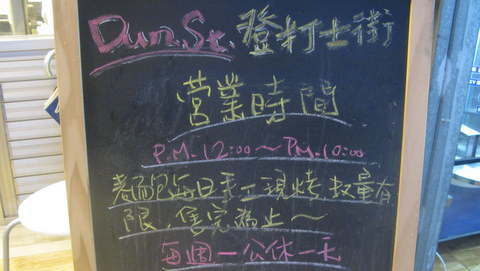 Dun.St. 登打士街
營業時間
P.M. 12:00～P.M. 10:00
麵包每日手工現烤, 數量有
限, 售完為止～
每週一公休一天